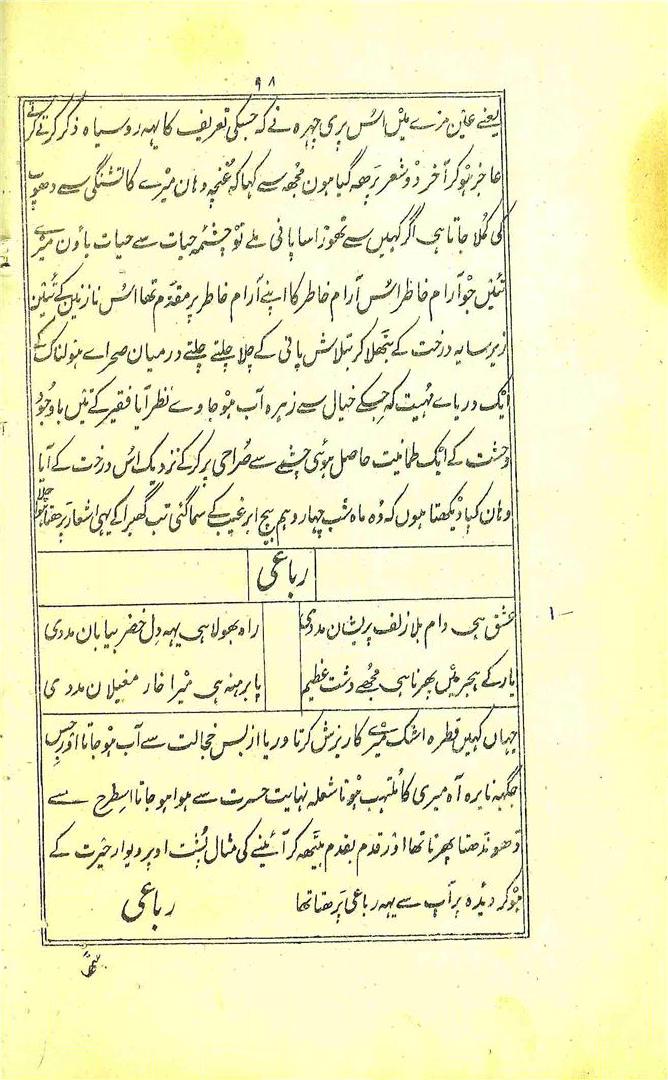 ۹۸
یعنے عین مزے مین اُس پری چہرہ نے کہ جسکی تعریف کا یہہ روسیاہ ذکر کرتے کرتے
عاجز ہو کر آخر دو شعر پڑھہ گیا ہون مجھہ سے کہا کہ غنچہ دہان میرے کا تشنگی سے دھوپ
کی کُملا جاتا ہی اگر کہیں سے تھوڑا سا پانی ملے تو چشمہ حیات سے حیات پاؤن میرے
تئین جو آرام خاطر اُس آرام خاطر کا اپنے آرام خاطر پر مقدّم تھا اُس نازنین کے تئین
زیر سایہ درخت کے بٹھلا کر بتلاش پانی کے چلا چلتے چلتے درمیان صحراے ہولناک کے
ایک دریاے مُہیت کہ جسکے خیال سے زہرہ آب ہو جاوے نظر آیا فقیر کے تئین باوجود
وحشت کے ایک طمانیت حاصل ہوئی چشمے سے صُراحی پُر کر کے نزدیک اُس درخت کے آیا
وہان کیا دیکھتا ہون کہ وُہ ماہ شب چہاردہم بیچ ابر غیب کے سما گئی تب گھبرا کے یہی اشعار پڑھتا ہوا چلا
رباعی
عشق ہی دام بلا زلف پریشان مددی
راہ بھولا ہی یہہ دل خضر بیابان مددی
۱
یار کے ہجر مین پھرنا ہی مجھے دشت عظیم
پا برہنہ ہی میرا خار مغیلان مددی
جہان کہین قطرہ اشک میرے کا ریزش کرتا دریا از بس خجالت سے آب ہو جاتا اور جس
جگہہ نایرہ آہ میری کا مُلتہب ہوتا شعلہ نہایت حسرت سے ہوا ہو جاتا اسطرح سے
ڈھونڈھتا پھرتا تھا اور قدم بقدم بیٹھہ کر آئینے کی مثال پُشت اوپر دیوار حیرت کے
ہو کر دیدہ پر آب سے یہہ رباعی پڑھتا تھا
رباعی